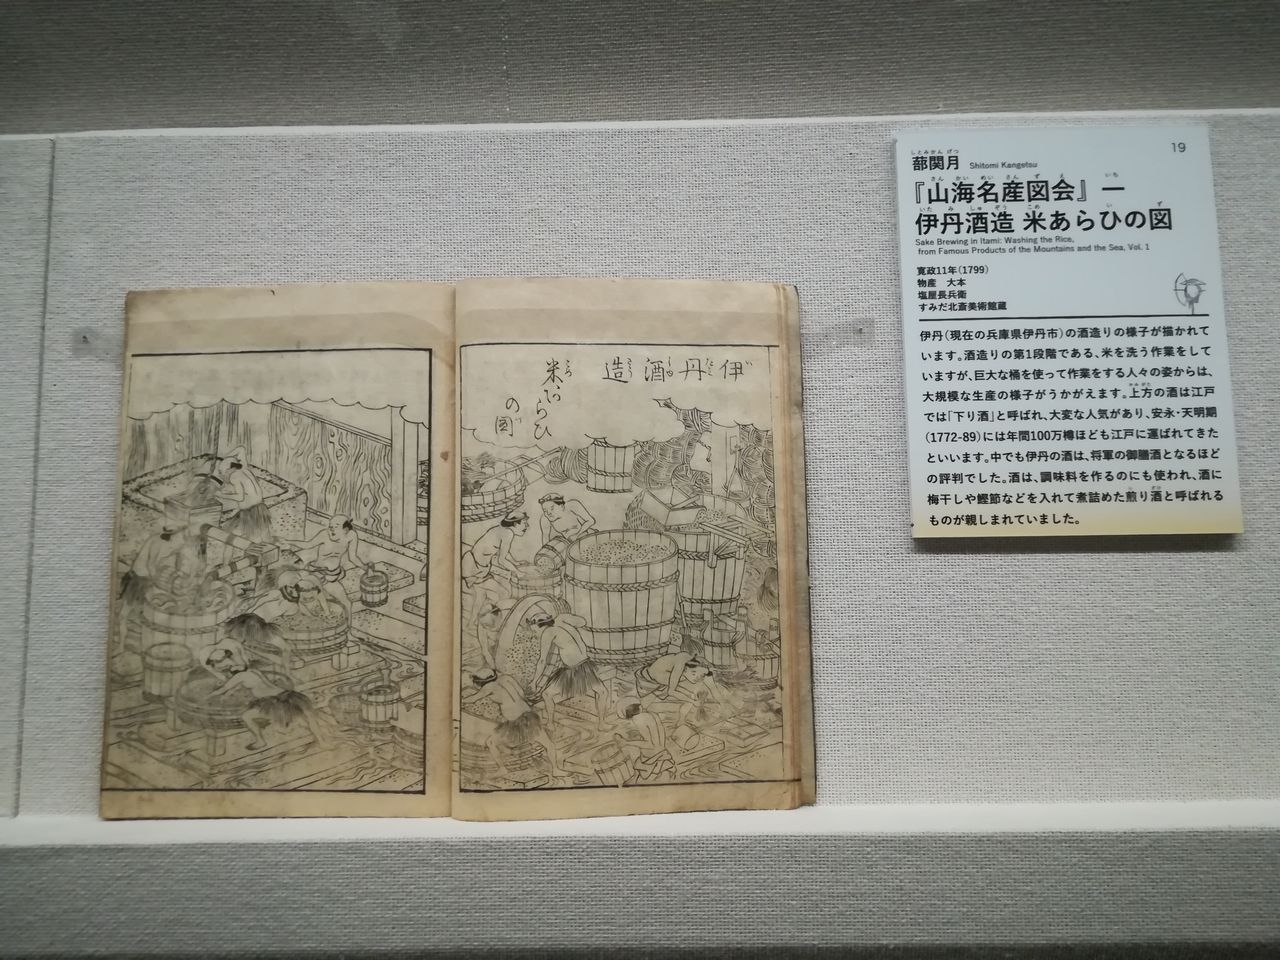 伊丹酒造
米あらひ
の図
19
しとみかんげつ
蔀関月 Shitomi Kangetsu
さんかいめいさんずえ いち
『山海名産図会』一
いたみしゅぞう こめ い ず
伊丹酒造 米あらひの図
Sake Brewing in Itami: Washing the Rice,
from Famous Products of the Mountains and the Sea, Vol. 1
寛政11年(1799)
物産 大本
塩屋長兵衛
すみだ北斎美術館蔵
伊丹(現在の兵庫県伊丹市)の酒造りの様子が描かれて
います。酒造りの第1段階である、米を洗う作業をして
いますが、巨大な桶を使って作業をする人々の姿からは、
大規模な生産の様子がうかがえます。上方の酒は江戸
では「下り酒」と呼ばれ、大変な人気があり、安永・天明期
(1772-89)には年間100万樽ほども江戸に運ばれてきた
といいます。中でも伊丹の酒は、将軍の御膳酒となるほど
の評判でした。酒は、調味料を作るのにも使われ、酒に
梅干しや鰹節などを入れて煮詰めた煎り酒と呼ばれる
ものが親しまれていました。